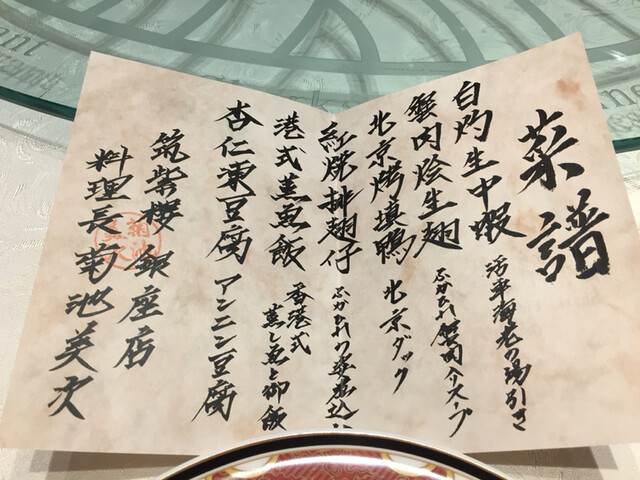 菜譜
白灼生中蝦 活車海老の湯引き
蟹肉烩生翅 ふかひれ蟹肉入りスープ
北京烤填鴨 北京ダック
紅焼排翅仔 ふかひれの姿煮込み
港式蒸魚飯 香港式
蒸し魚と御飯
杏仁凍豆腐 アンニン豆腐
筑紫樓銀座店
料理長菊池美次